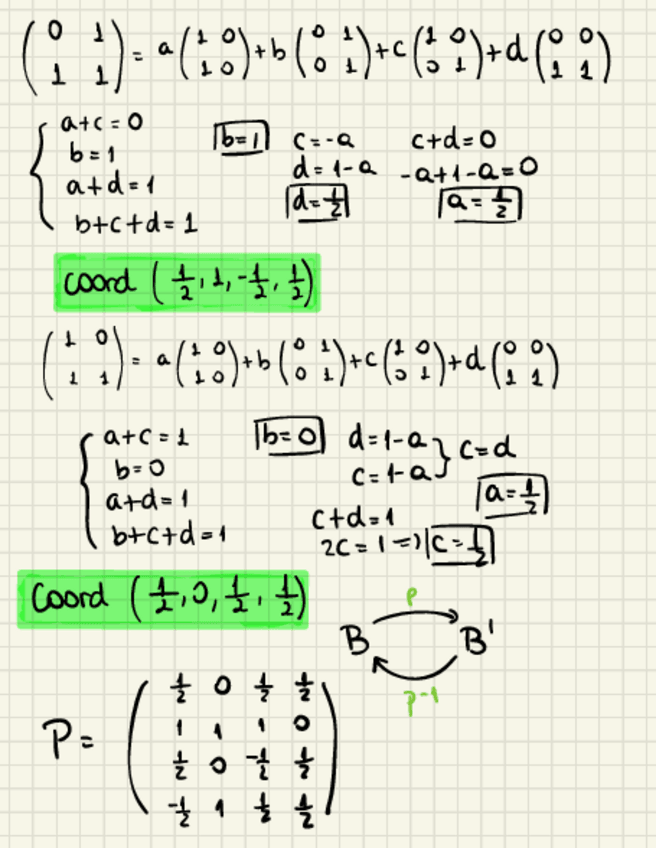 (0 1 / 1 1) = a(1 0 / 1 0) + b(0 1 / 0 1) + c(1 0 / 0 1) + d(0 0 / 1 1)
a+c=0
b=1
a+d=1
b+c+d=1
b=1
c=-a
d=1-a
d=1/2
c+d=0
-a+1-a=0
a=1/2
Coord (1/2, 1, -1/2, 1/2)
(1 0 / 1 1) = a(1 0 / 1 0) + b(0 1 / 0 1) + c(1 0 / 0 1) + d(0 0 / 1 1)
a+c=1
b=0
a+d=1
b+c+d=1
b=0
d=1-a
c=1-a } c=d
a=1/2
c+d=1
2c=1 => c=1/2
Coord (1/2, 0, 1/2, 1/2)
P
B B'
P-1
P=
1/2 0 1/2 1/2
1 1 1 0
1/2 0 -1/2 1/2
-1/2 1 1/2 1/2